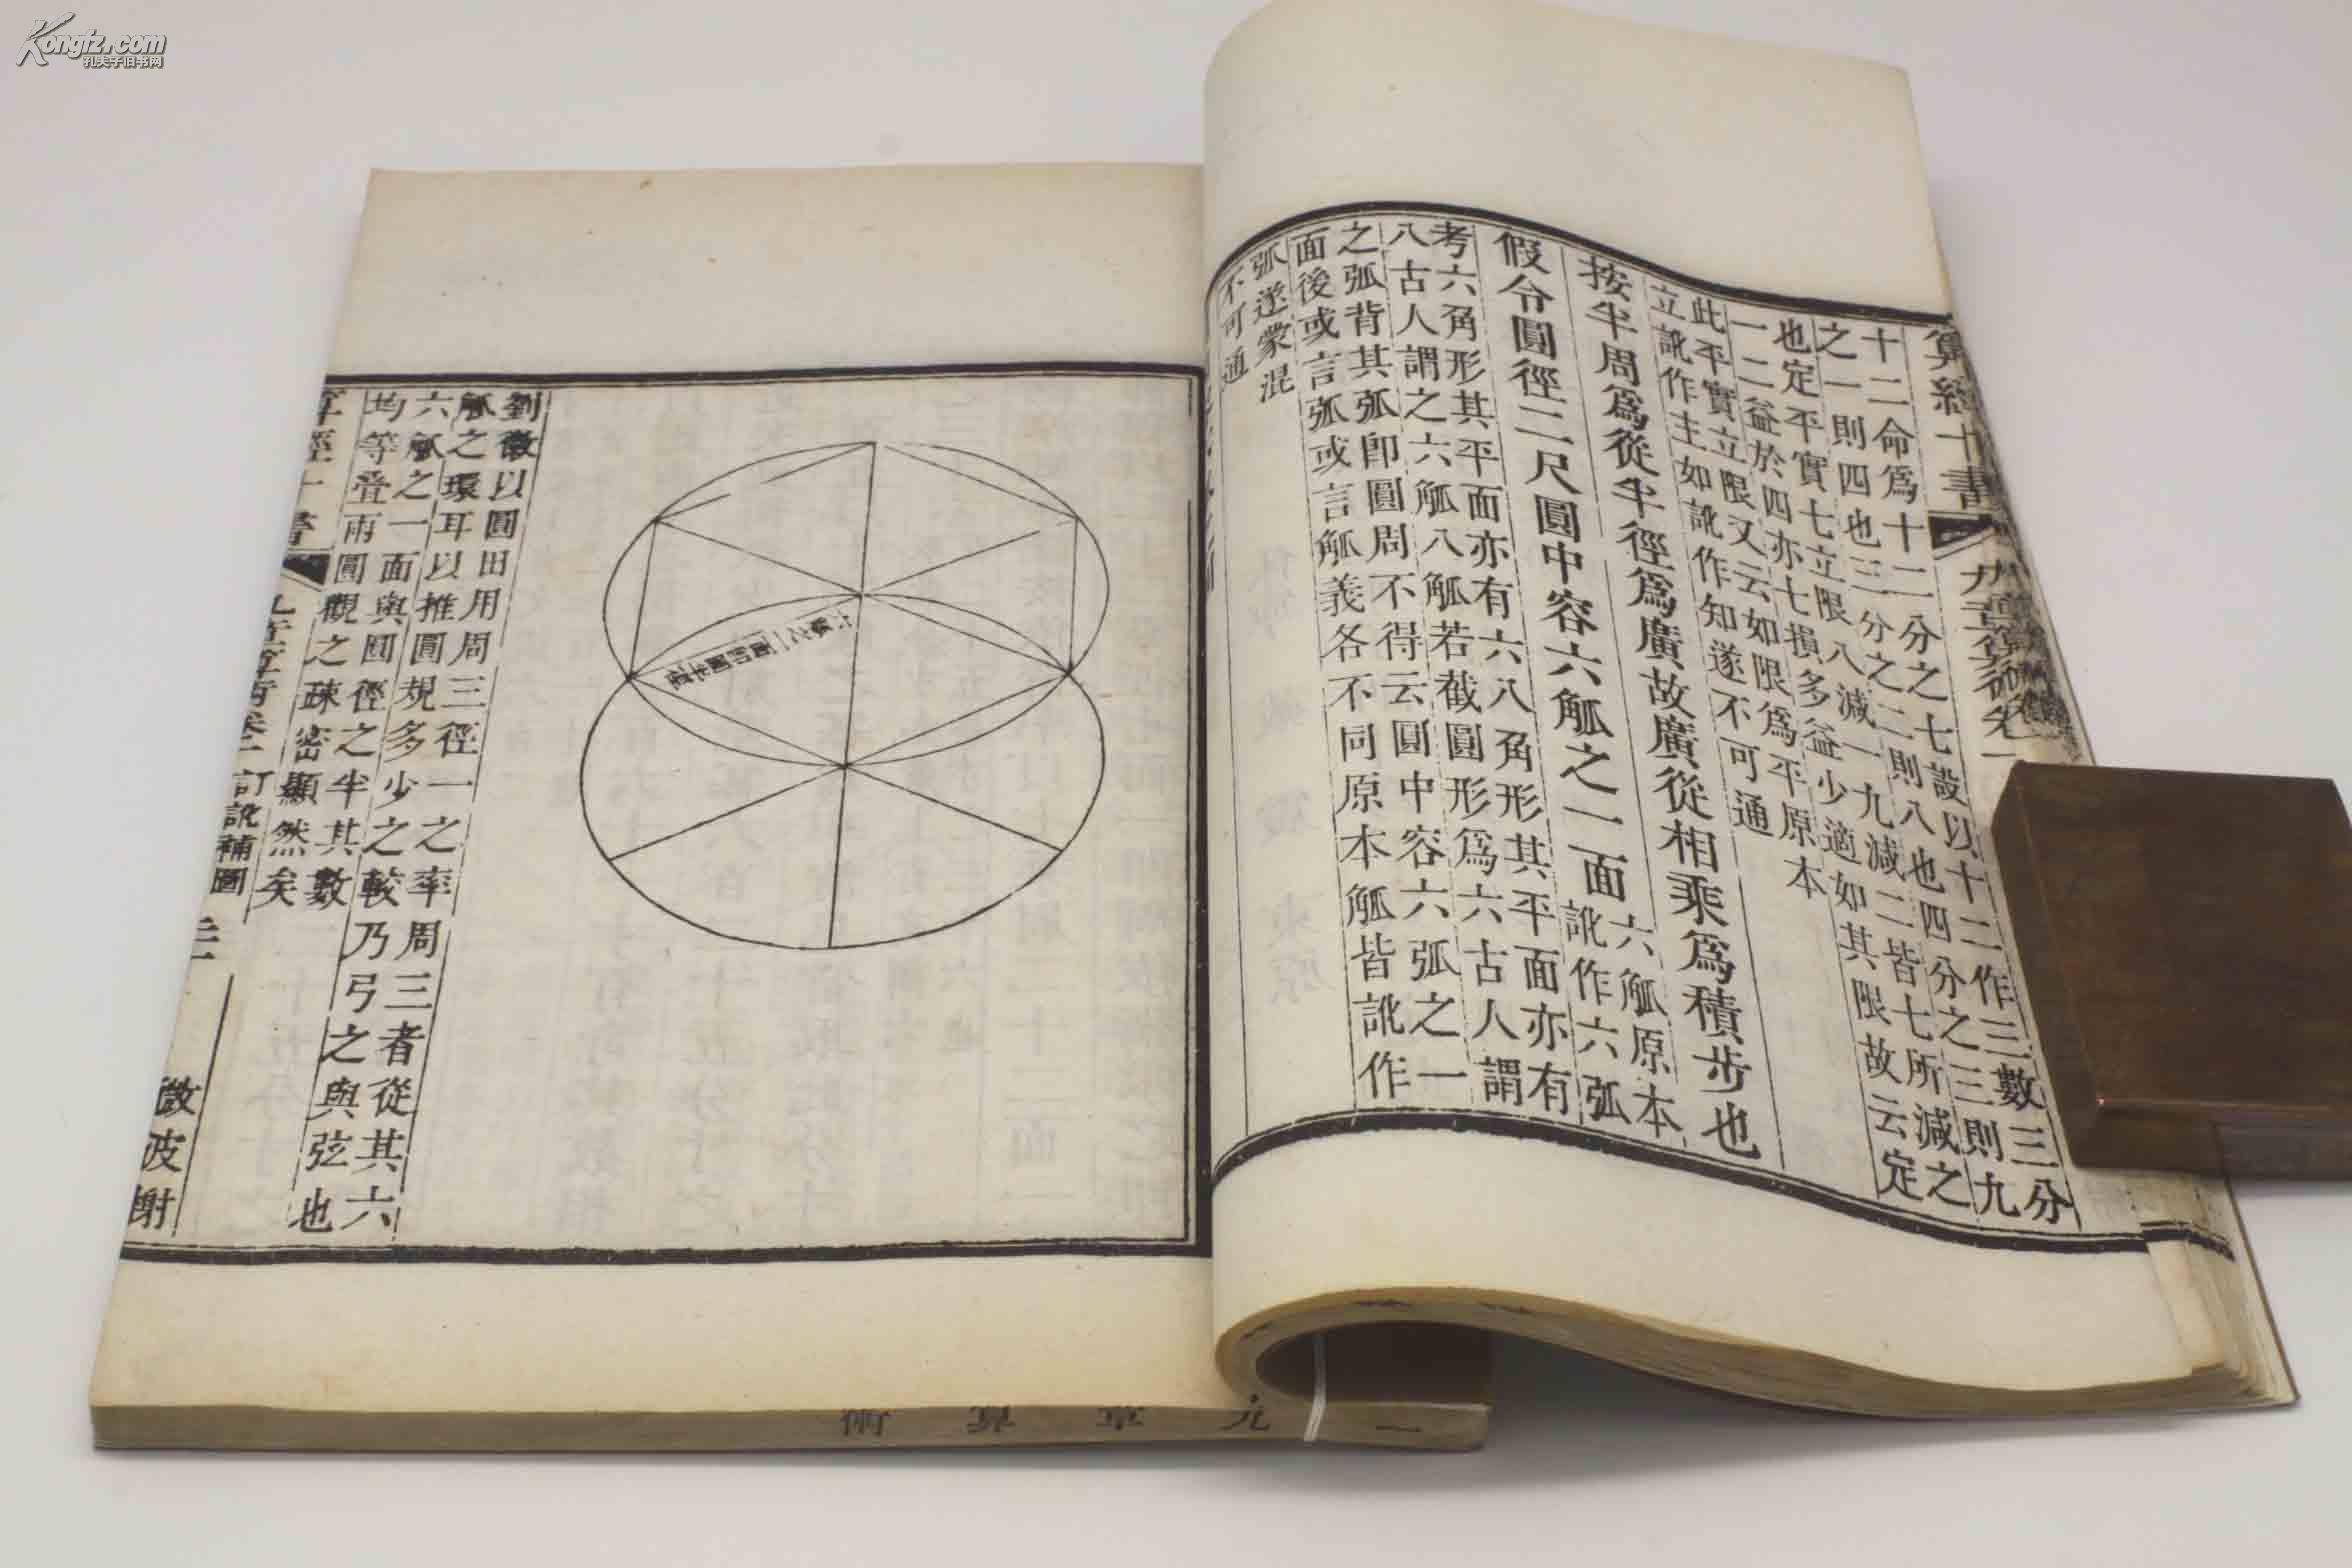 算經十書 九章算術卷一
十二命爲十二分之七設以十二作三數三分
之一則四也三分之二則八也四分之三則九
也定平實七立限八減一九減二皆七所減之
一二益於四亦七損多益少適如其限故云定
此平實立限又云如限爲平原本
立訛作主如訛作知遂不可通
按半周爲從半徑爲廣故廣從相乘爲積步也
假令圓徑二尺圓中容六觚之一面
六觚原本
訛作六弧
考六角形其平面亦有六八角形其平面亦有
八古人謂之六觚八觚若截圓形爲六古人謂
之弧背其弧卽圓周不得云圓中容六弧之一
面後或言弧或言觚義各不同原本觚皆訛作
弧遂蒙混
不可通
六觚之一面卽圓半徑
劉徽以圓田用周三徑一之率周三者從其六
觚之環耳以推圓規多少之較乃弓之與弦也
六觚之一面與圓徑之半其數
均等疊兩圓觀之疎密顯然矣
算經十書 九章算術卷一 訂訛補圖 微波榭
一 九章算術
Kongfz.com
孔夫子旧书网